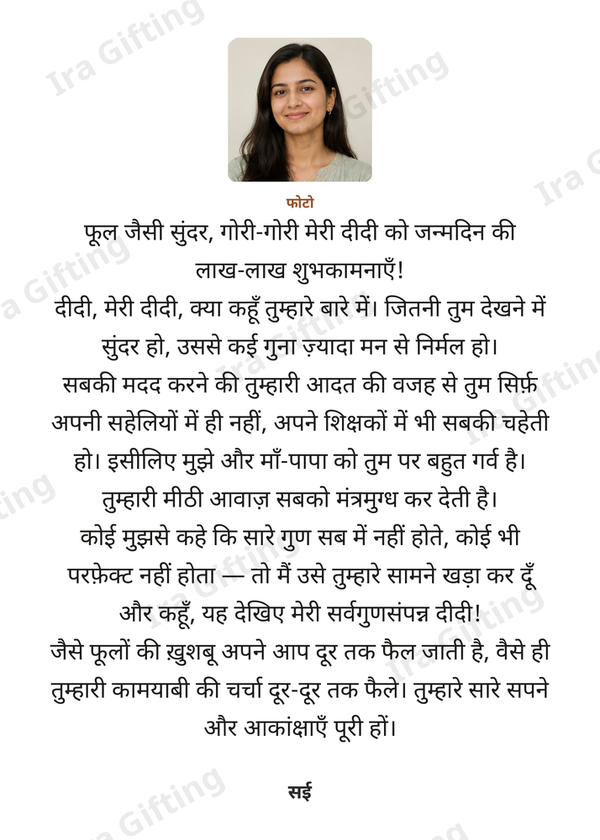 फोटो
फूल जैसी सुंदर, गोरी-गोरी मेरी दीदी को जन्मदिन की
लाख-लाख शुभकामनाएँ!
दीदी, मेरी दीदी, क्या कहूँ तुम्हारे बारे में। जितनी तुम देखने में
सुंदर हो, उससे कई गुना ज़्यादा मन से निर्मल हो।
सबकी मदद करने की तुम्हारी आदत की वजह से तुम सिर्फ़
अपनी सहेलियों में ही नहीं, अपने शिक्षकों में भी सबकी चहेती
हो। इसीलिए मुझे और माँ-पापा को तुम पर बहुत गर्व है।
तुम्हारी मीठी आवाज़ सबको मंत्रमुग्ध कर देती है।
कोई मुझसे कहे कि सारे गुण सब में नहीं होते, कोई भी
परफ़ेक्ट नहीं होता — तो मैं उसे तुम्हारे सामने खड़ा कर दूँ
और कहूँ, यह देखिए मेरी सर्वगुणसंपन्न दीदी!
जैसे फूलों की ख़ुशबू अपने आप दूर तक फैल जाती है, वैसे ही
तुम्हारी कामयाबी की चर्चा दूर-दूर तक फैले। तुम्हारे सारे सपने
और आकांक्षाएँ पूरी हों।
सई
Ira Gifting
Ira Gifting
Ira Gifting
Ira Gifting
Ira Gifting
Ira Gifting
Ira Gifting
Ira Gifting